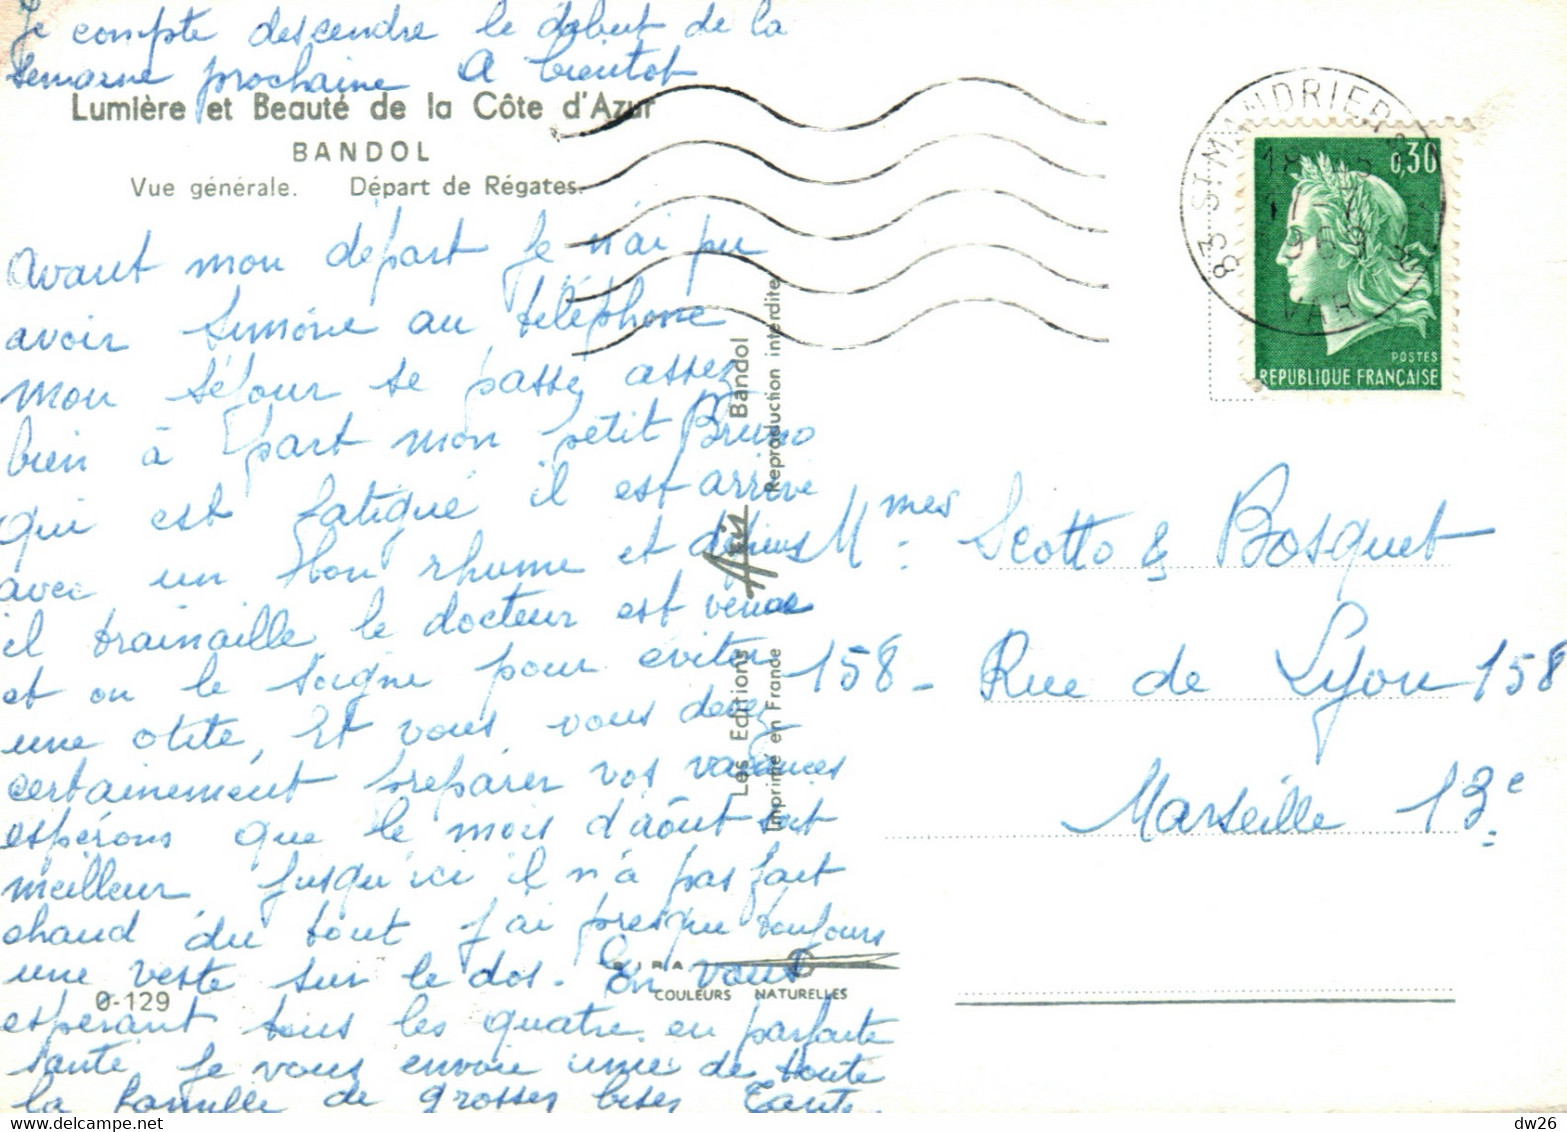 Je compte descendre le début de la
semaine prochaine A bientot
Lumière et Beauté de la Côte d'Azur
BANDOL
Vue générale. Départ de Régates.
Avant mon départ Je n'ai pu
avoir Simone au téléphone
mon séjour se passe assez
bien à part mon petit Bruno
qui est fatigué il est arrivé
avec un bon rhume et depuis
il trainaille le docteur est venue
et on le soigne pour éviter
une otite, Et vous vous devez
certainement préparer vos vacances
espérons que le mois d'août soit
meilleur Jusqu'ici il n'a pas fait
chaud du tout J'ai presque toujours
une veste sur le dos. En vous
espérant tous les quatre en parfaite
santé Je vous envoie ainsi de toute
la famille de grosses bises Tante
0-129
COULEURS NATURELLES
Les Editions Aris Bandol
Imprimé en France Reproduction interdite
83 ST MANDRIER S
18
17-7
1969
VAR
0,30
POSTES
REPUBLIQUE FRANÇAISE
Mmes Scotto & Bosquet
158 - Rue de Lyon 158
Marseille 13e
dw26